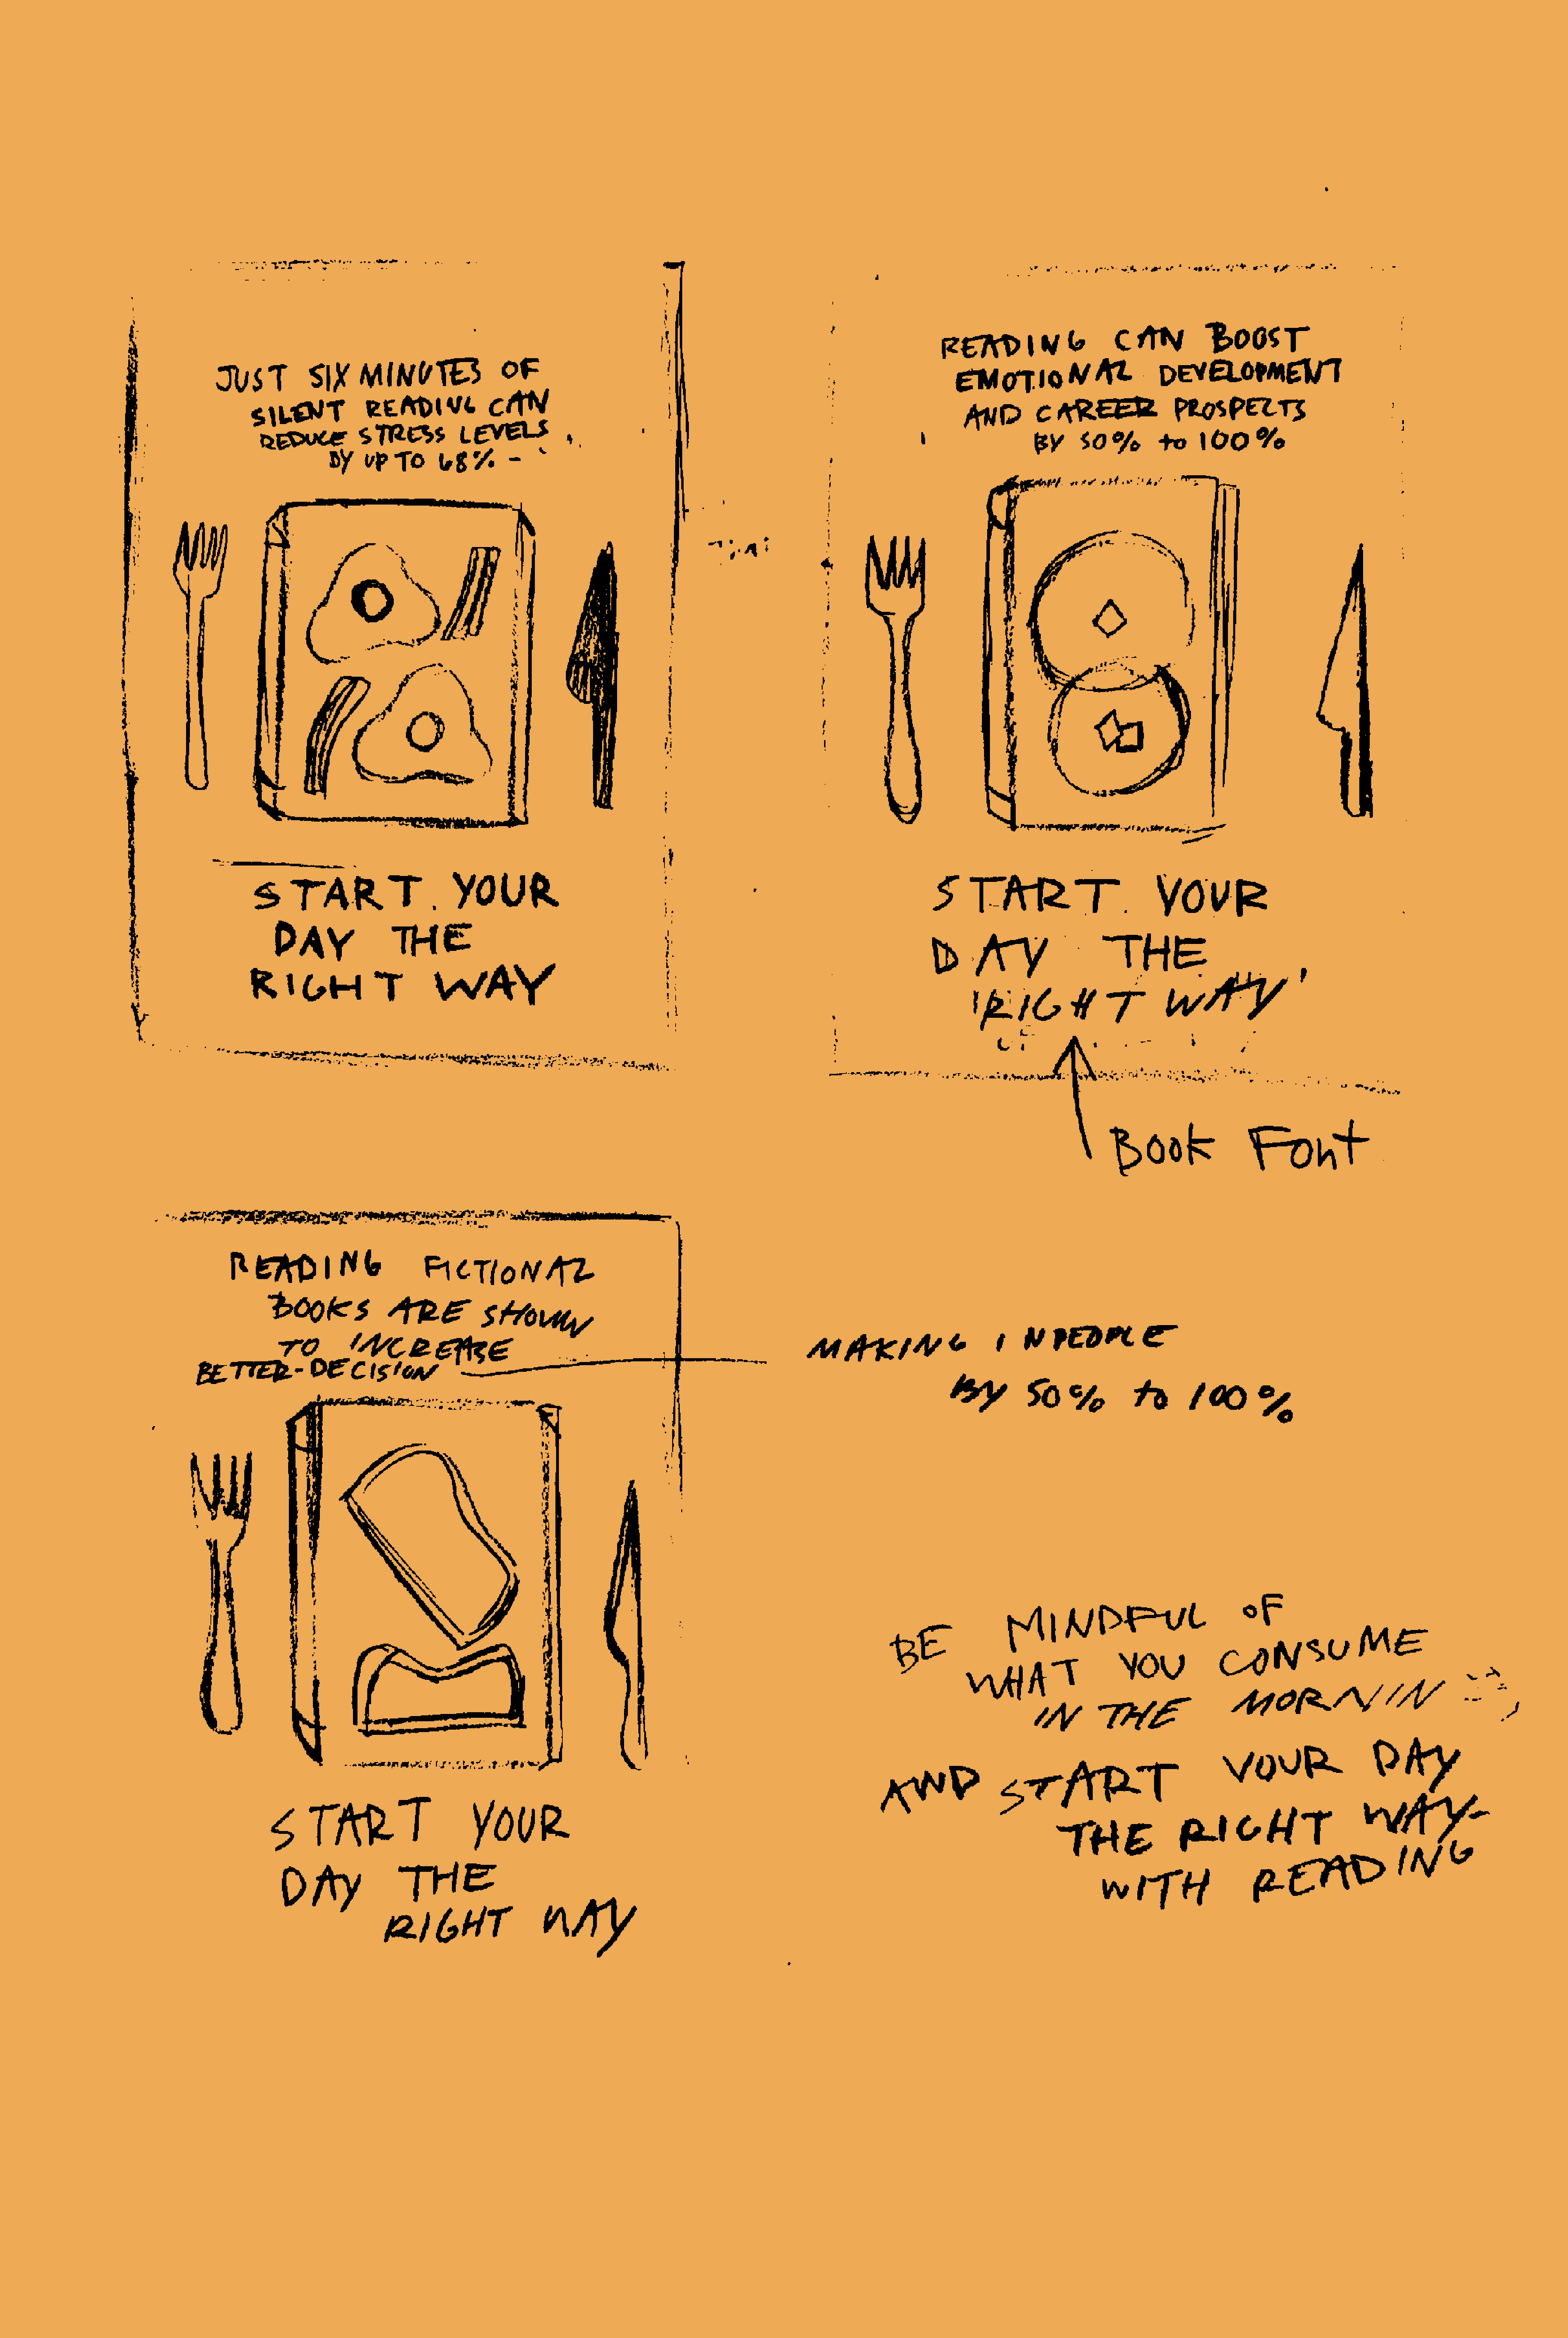 JUST SIX MINUTES OF
SILENT READING CAN
REDUCE STRESS LEVELS
BY UP TO 68% -
START YOUR
DAY THE
RIGHT WAY
READING CAN BOOST
EMOTIONAL DEVELOPMENT
AND CAREER PROSPECTS
BY 50% to 100%
START YOUR
DAY THE
'RIGHT WAY'
Book Font
READING FICTIONAL
BOOKS ARE SHOWN
TO INCREASE
BETTER-DECISION
MAKING IN PEOPLE
BY 50% to 100%
START YOUR
DAY THE
RIGHT WAY
BE MINDFUL OF
WHAT YOU CONSUME
IN THE MORNIN
AND START YOUR DAY
THE RIGHT WAY-
WITH READING